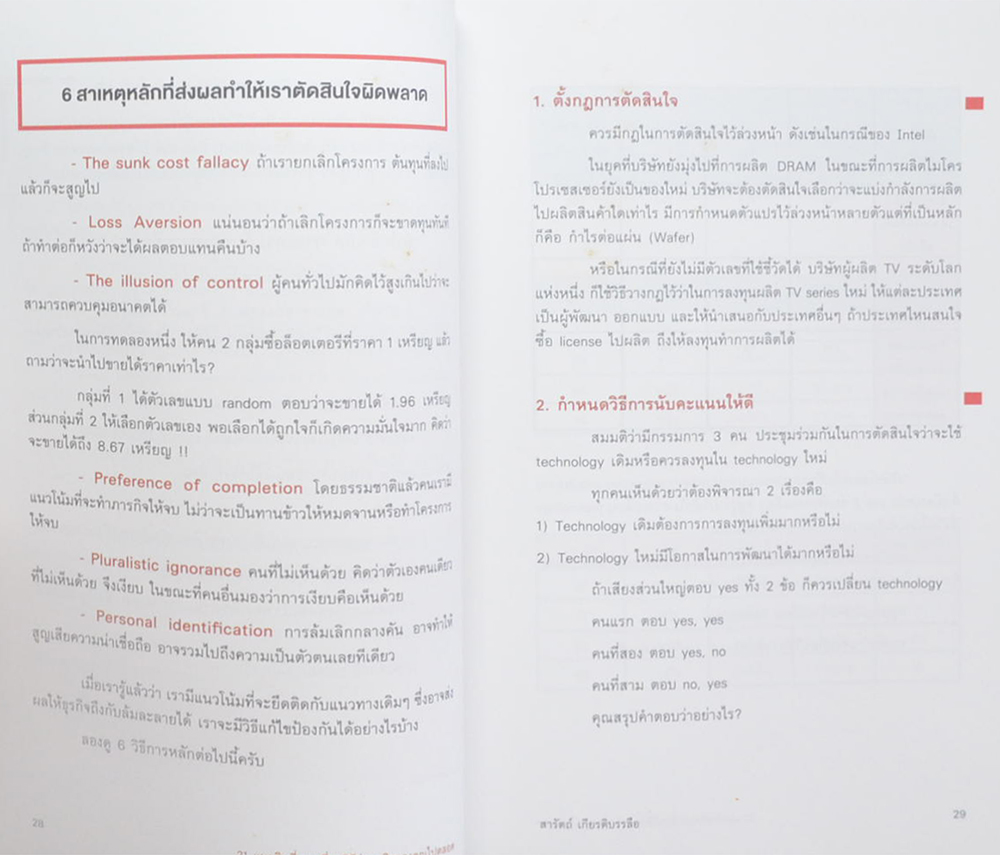 6 สาเหตุหลักที่ส่งผลทำให้เราตัดสินใจผิดพลาด
- The sunk cost fallacy ถ้าเรายกเลิกโครงการ ต้นทุนที่ลงไป
แล้วก็จะสูญไป
- Loss Aversion แน่นอนว่าถ้าเลิกโครงการก็จะขาดทุนทันที
ถ้าทำต่อก็หวังว่าจะได้ผลตอบแทนคืนบ้าง
- The illusion of control ผู้คนทั่วไปมักคิดไว้สูงเกินไปว่าจะ
สามารถควบคุมอนาคตได้
ในการทดลองหนึ่ง ให้คน 2 กลุ่มซื้อล็อตเตอรีที่ราคา 1 เหรียญ แล้ว
ถามว่าจะนำไปขายได้ราคาเท่าไร?
กลุ่มที่ 1 ได้ตัวเลขแบบ random ตอบว่าจะขายได้ 1.96 เหรียญ
ส่วนกลุ่มที่ 2 ให้เลือกตัวเลขเอง พอเลือกได้ถูกใจก็เกิดความมั่นใจมาก คิดว่า
จะขายได้ถึง 8.67 เหรียญ !!
- Preference of completion โดยธรรมชาติแล้วคนเรามี
แนวโน้มที่จะทำภารกิจให้จบ ไม่ว่าจะเป็นทานข้าวให้หมดจานหรือทำโครงการ
ให้จบ
- Pluralistic ignorance คนที่ไม่เห็นด้วย คิดว่าตัวเองคนเดียว
ที่ไม่เห็นด้วย จึงเงียบ ในขณะที่คนอื่นมองว่าการเงียบคือเห็นด้วย
- Personal identification การล้มเลิกกลางคัน อาจทำให้
สูญเสียความน่าเชื่อถือ อาจรวมไปถึงความเป็นตัวตนเลยทีเดียว
เมื่อเรารู้แล้วว่า เรามีแนวโน้มที่จะยึดติดกับแนวทางเดิมๆ ซึ่งอาจส่ง
ผลให้ธุรกิจถึงกับล้มละลายได้ เราจะมีวิธีแก้ไขป้องกันได้อย่างไรบ้าง
ลองดู 6 วิธีการหลักต่อไปนี้ครับ
28
1. ตั้งกฎการตัดสินใจ
ควรมีกฎในการตัดสินใจไว้ล่วงหน้า ดังเช่นในกรณีของ Intel
ในยุคที่บริษัทยังมุ่งไปที่การผลิต DRAM ในขณะที่การผลิตไมโคร
โปรเซสเซอร์ยังเป็นของใหม่ บริษัทจะต้องตัดสินใจเลือกว่าจะแบ่งกำลังการผลิต
ไปผลิตสินค้าใดเท่าไร มีการกำหนดตัวแปรไว้ล่วงหน้าหลายตัวแต่ที่เป็นหลัก
ก็คือ กำไรต่อแผ่น (Wafer)
หรือในกรณีที่ยังไม่มีตัวเลขที่ใช้ชี้วัดได้ บริษัทผู้ผลิต TV ระดับโลก
แห่งหนึ่ง ก็ใช้วิธีวางกฎไว้ว่าในการลงทุนผลิต TV series ใหม่ ให้แต่ละประเทศ
เป็นผู้พัฒนา ออกแบบ และให้นำเสนอกับประเทศอื่นๆ ถ้าประเทศไหนสนใจ
ซื้อ license ไปผลิต ถึงให้ลงทุนทำการผลิตได้
2. กำหนดวิธีการนับคะแนนให้ดี
สมมติว่ามีกรรมการ 3 คน ประชุมร่วมกันในการตัดสินใจว่าจะใช้
technology เดิมหรือควรลงทุนใน technology ใหม่
ทุกคนเห็นด้วยว่าต้องพิจารณา 2 เรื่องคือ
1) Technology เดิมต้องการการลงทุนเพิ่มมากหรือไม่
2) Technology ใหม่มีโอกาสในการพัฒนาได้มากหรือไม่
ถ้าเสียงส่วนใหญ่ตอบ yes ทั้ง 2 ข้อ ก็ควรเปลี่ยน technology
คนแรก ตอบ yes, yes
คนที่สอง ตอบ yes, no
คนที่สาม ตอบ no, yes
คุณสรุปคำตอบว่าอย่างไร?
สารัตถ์ เกียรติบรรลือ
29